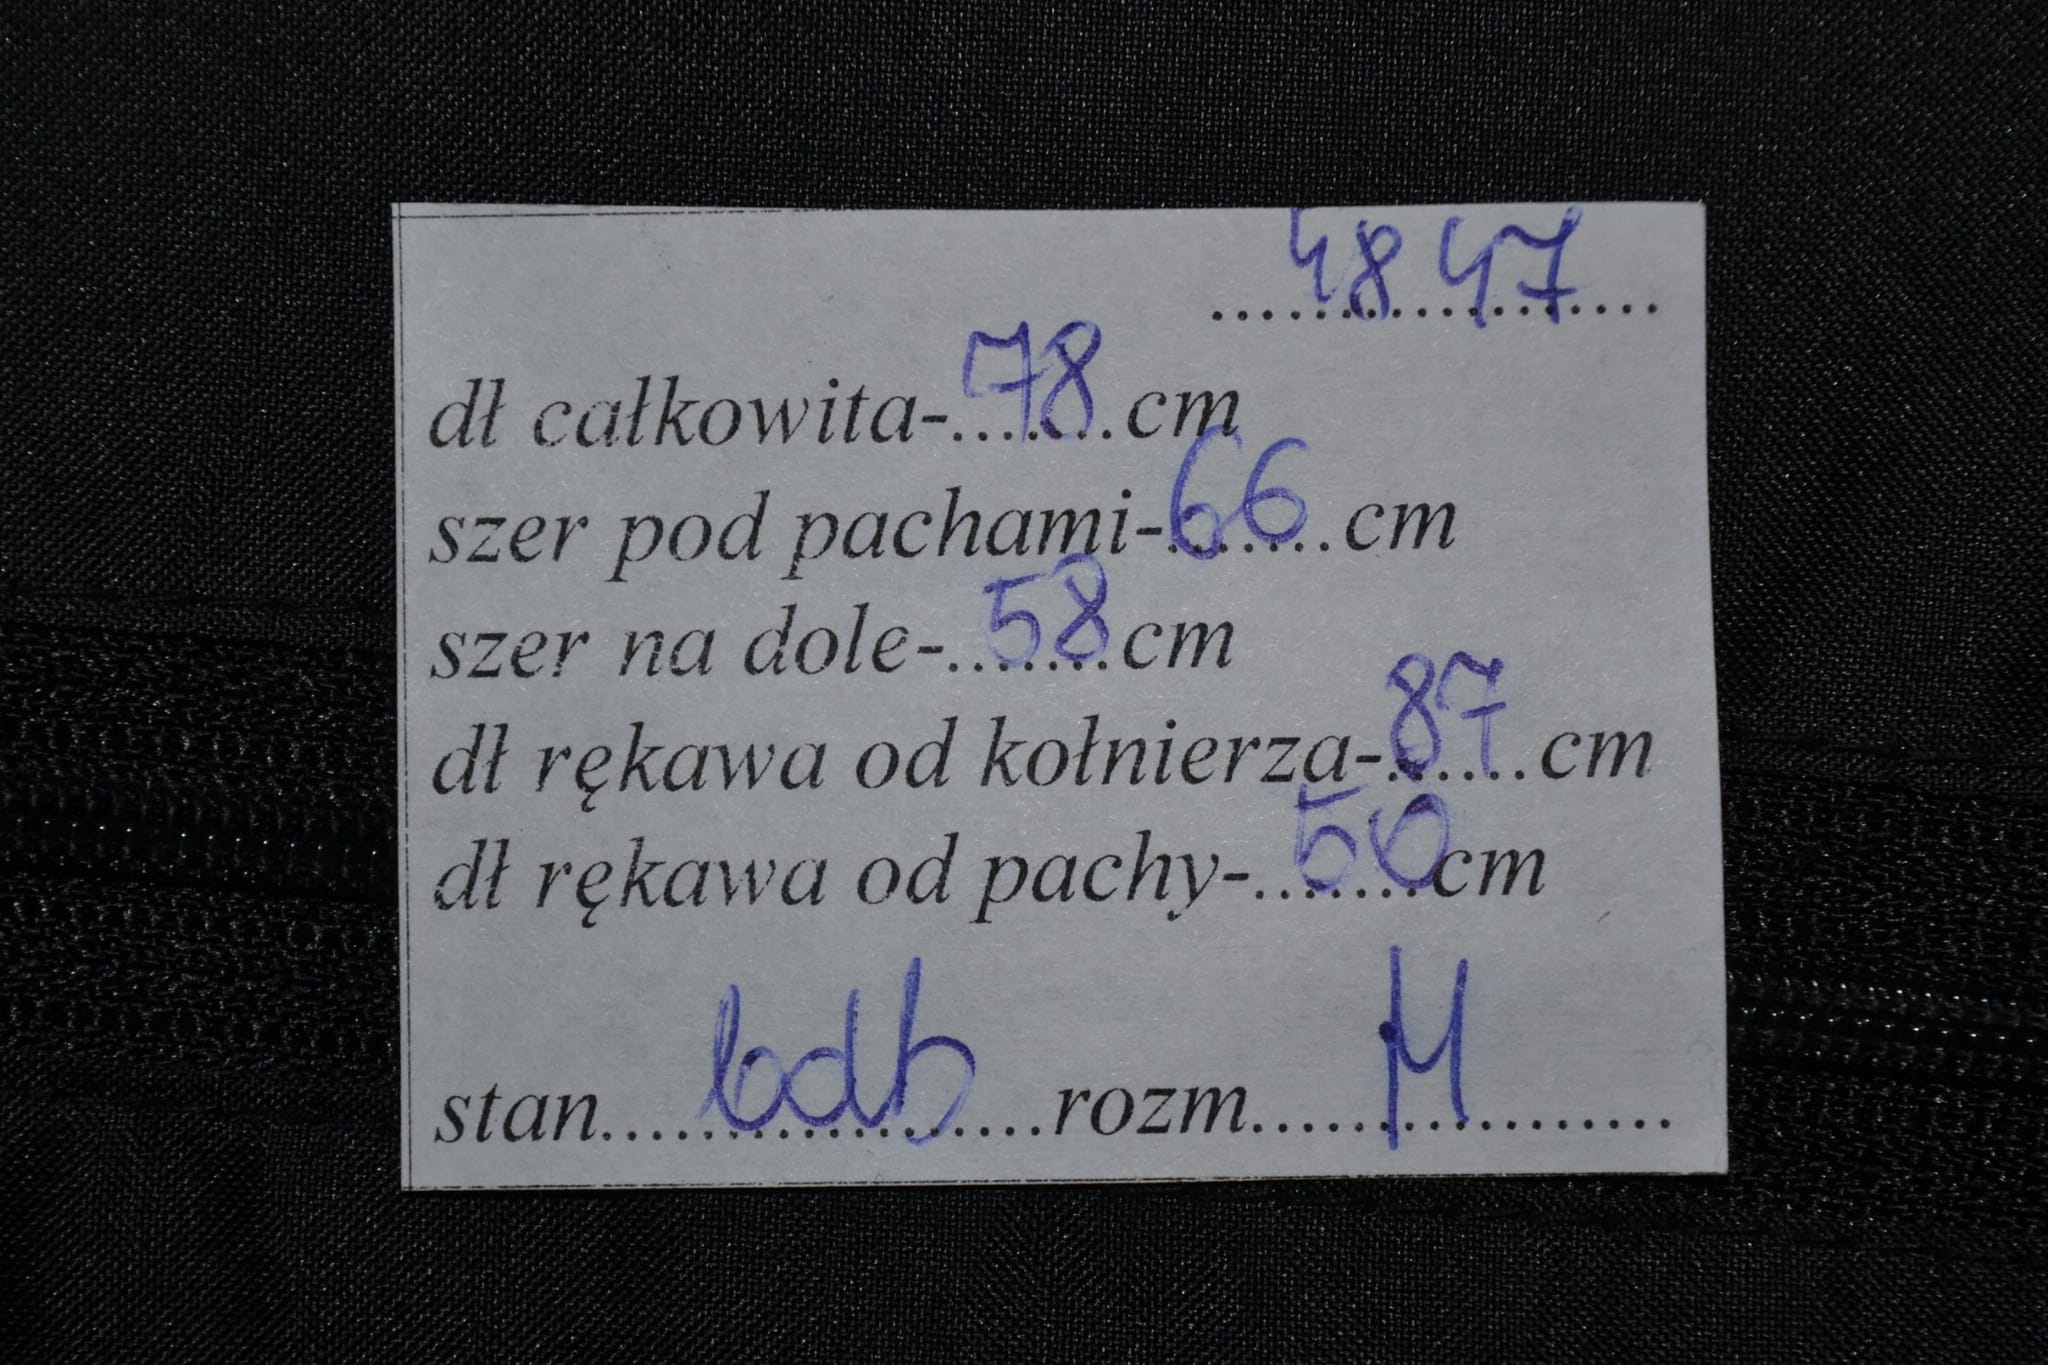 4847
dł całkowita-.......78 cm
szer pod pachami-66.......cm
szer na dole-.......58 cm
dł rękawa od kołnierza-87......cm
dł rękawa od pachy-.......50 cm
stan.......bdb.......rozm.......M.......